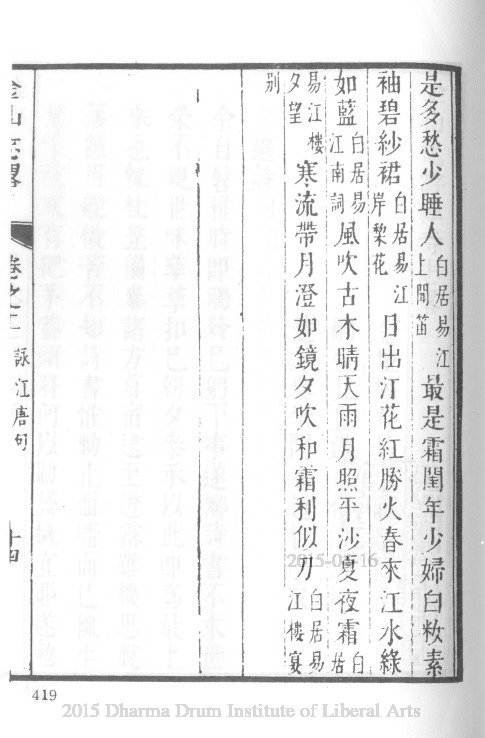 是多愁少睡人白居易江上聞笛最是霜閨年少婦白籹素
袖碧紗裙白居易江岸棃花日出江花紅勝火春來江水綠
如藍白居易江南詞風吹古木晴天雨月照平沙夏夜霜白居
易江樓夕望寒流帶月澄如鏡夕吹和霜利似刀白居易江樓宴
別
金山志畧 卷之二 詠江唐句 十四
2015-03-16
419
2015 Dharma Drum Institute of Liberal Arts